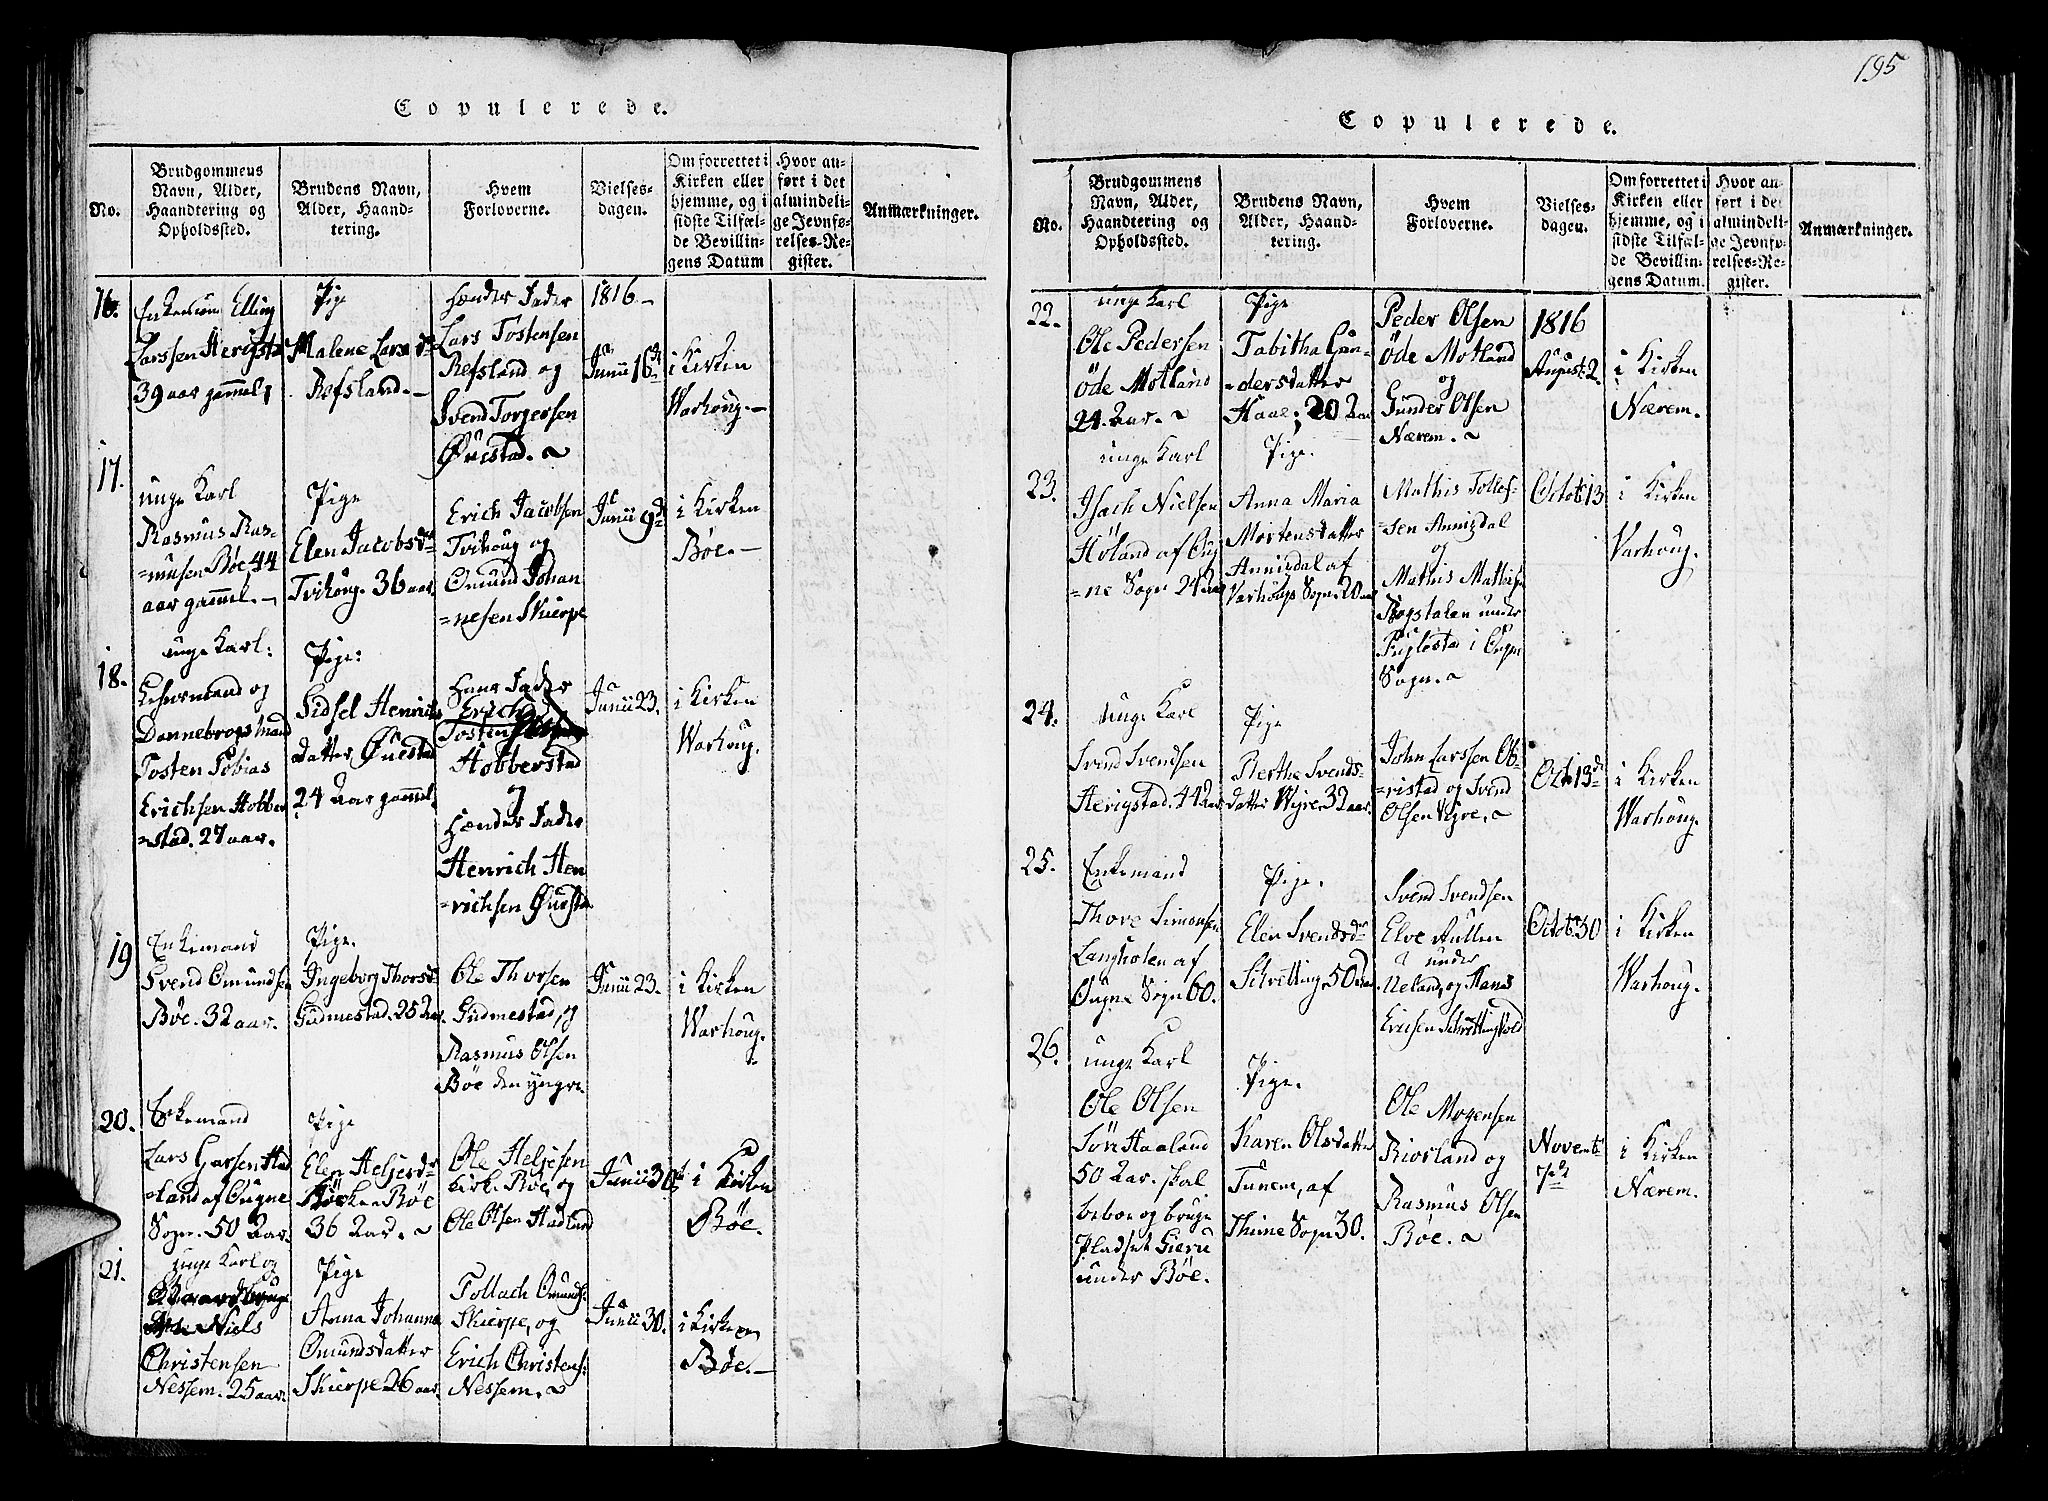 195
Copulerede.
No.
Brudgommens
Navn, Alder,
Haandtering og
Opholdssted.
Brudens Navn,
Alder, Haand-
tering.
Hvem
Forloverne.
Vielses-
dagen.
Om forrettet i
Kirken eller
hjemme, og i
sidste Tilfæl-
de Bevillin-
gens Datum
Hvor an-
ført i det
almindeli-
ge Jevnfø-
relses-Re-
gister.
Anmærkninger.
16.
Enkemand Elling
Larssen Herigstad
39 aar gammel,
Pige
Malene Larsdr
Refsland.-
Hendes Fader
Lars Tostensen
Refsland og
Svend Torgersen
Øuestad.
1816-
Junii 16de
i Kirken
Warhoug.-
17.
unge Karl
Rasmus Ras-
=musen Bøe 44
aar gammel.-
Pige
Elen Jacobsdr
Tvihoug. 36 aar
Erich Jacobsen
Tvihoug og
Omund Johan
=nesen Skierpe
Junii 9de
i Kirken
Bøe.-
18.
unge Karl:
Lehnsmand og
Dannebrogsmand
Tosten Tobias
Erichsen Hobber
=stad. 27 aar.
Pige:
Sidsel Henrichs
datter Øuestad
24 Aar gammel
Hans Fader
Erich
Tosten
Hobberstad
og
Hendes Fader
Henrich Hen
=richsen Øuesta
Junii 23.
i Kirken
Warhoug.
19
Enkemand
Svend Omundsen
Bøe. 32 aar.
Pige.
Ingeborg Thorsdr
Gudmestad. 25 Aar.
Ole Thorsen
Gudmestad, og
Rasmus Olsen
Bøe den yngre.
Junii 23.
i Kirken
Warhoug.
20.
Enkemand
Lars Larsen Had
=land af Øugne
Sogn. 50 Aar.
Pige
Elen Heljesdr
Kirke Bøe
36 Aar.
Ole Heljesen
Kirk. Bøe, og
Ole Olsen Hadland
Junii 30te
i Kirken
Bøe.
21.
unge Karl og
Niels
Christensen
Nessem. 25 aar.
Pige
Anna Johanna
Omundsdatter
Skierpe 26 aar.
Tollach Omunds:
Skierpe, og
Erich Christens:
Nessem.
Junii 30.
i Kirken
Bøe.-
Copulerede.
No.
Brudgommens
Navn, Alder,
Haandtering og
Opholdssted.
Brudens Navn,
Alder, Haand-
tering.
Hvem
Forloverne.
Vielses-
dagen.
Om forrettet i
Kirken eller
hjemme, og i
sidste Tilfæl-
de Bevillin-
gens Datum.
Hvor an-
ført i det
almindeli-
ge Jevnfø-
relses-Re-
gister.
Anmærkninger.
22.
unge Karl
Ole Pedersen
Øde Motland
24. Aar.
Pige
Tabitha Gun-
=dersdatter
Haar; 20 Aar
Peder Olsen
Øde Motland
og
Gunder Olsen
Nærem.
1816
August 2.
i Kirken
Nærem.
23.
unge Karl
Isach Nielsen
Høland af Øug
=ne Sogn 24 aar
Pige.
Anna Maria
Mortensdatter
Annisdal af
Varhougs Sogn. 20 aar
Mathis Tollef-
=sen Annisdal
og
Mathis Mathisen
Rogstalen under
Fuglestad i Øugne
Sogn.
Octob: 13
i Kirken
Varhoug.
24.
unge Karl
Svend Svendsen
Herigstad. 44 Aar
Pige
Berthe Svends-
datter Wigre 32 aar.
John Larssen Ob-
=ristad og Svend
Olsen Vigre.
Oct 13de
i Kirken
Warhoug.
25.
Enkemand
Thore Simonsen
Langholen af
Øugne Sogn 60.
Pige.
Elen Svendsdr
Schretting 50 aar
Svend Svendsen
Elve Hullen
under
Ueland, og Hans
Ericsen Schrettingvold
Octob: 30
i Kirken
Warhoug.
26.
unge Karl
Ole Olsen
Sør Haaland
50 Aar. skal
beboe og bruge
Pladset
under Bøe.
Pige.
Karen Olsdatter
Tunem, af
Thime Sogn 30.
Ole Mogensen
Riorland og
Rasmus Olsen
Bøe.
Novemb:
7de
i Kirken
Nærem.